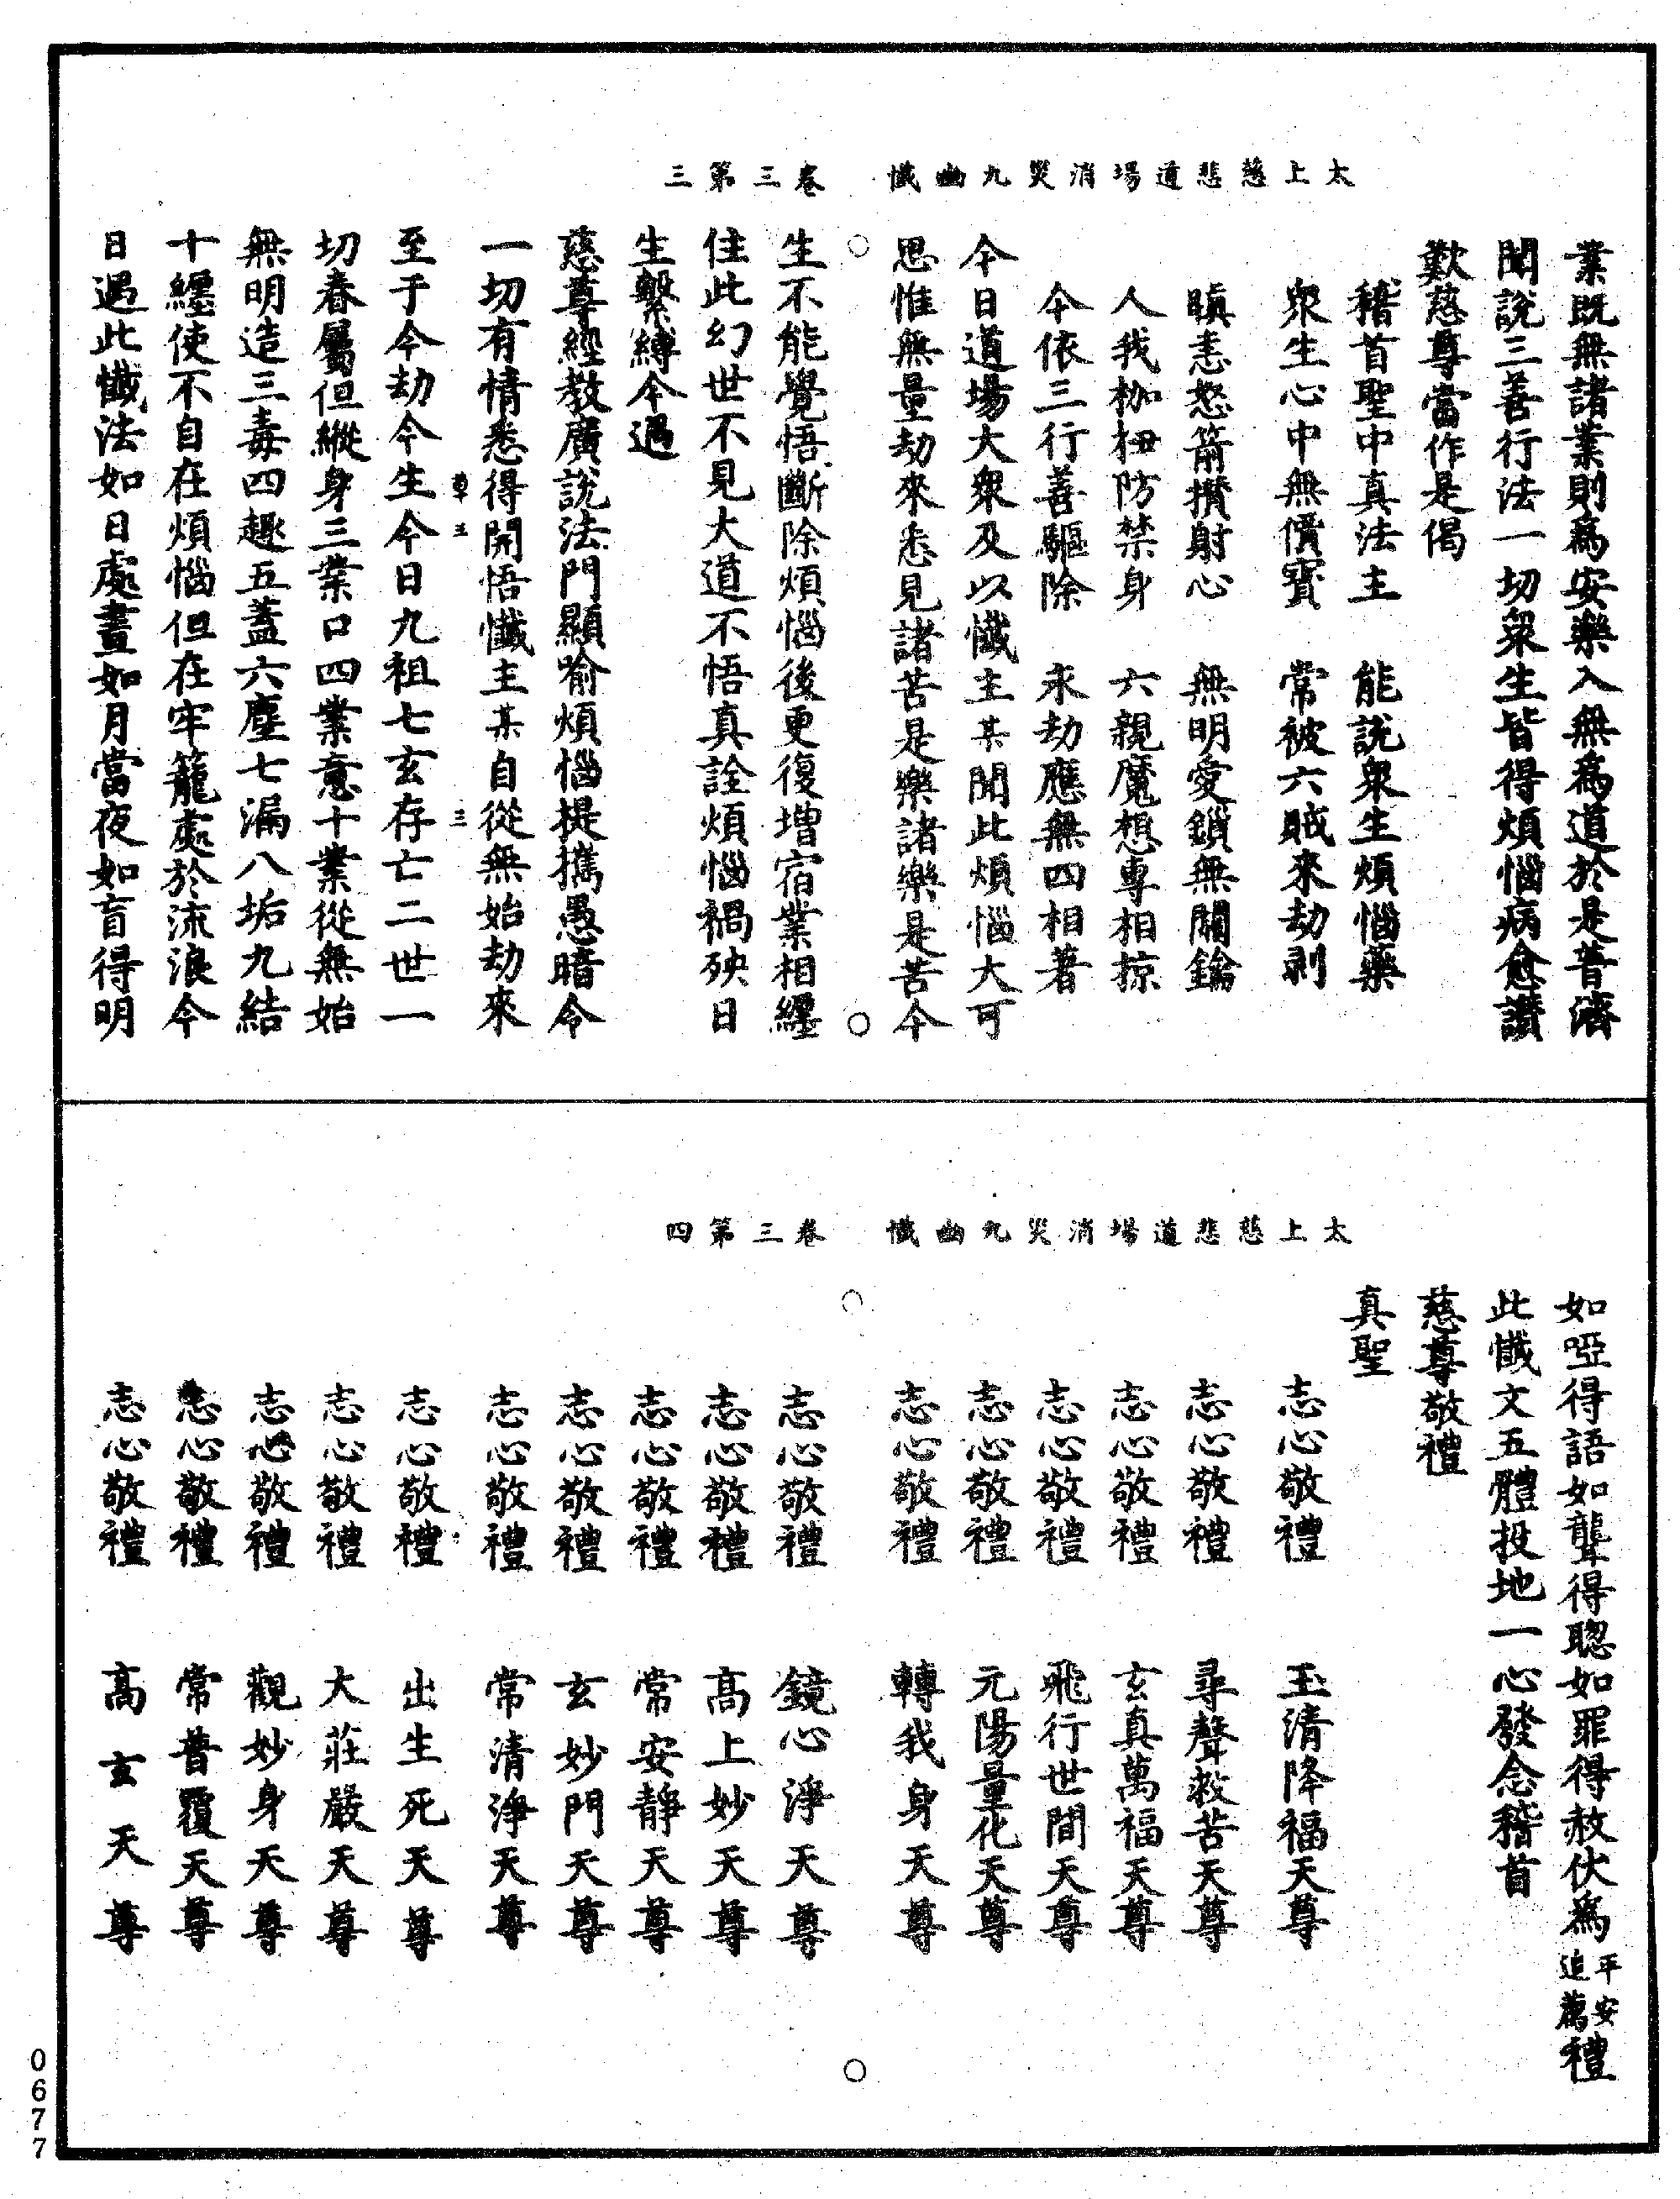 太上慈悲道場消災九幽懺　卷三第三
業既無諸業則爲安樂入無爲道於是普濟
聞說三善行法一切衆生皆得煩惱病愈讃
歎慈尊當作是偈
稽首聖中真法主　能說衆生煩惱藥
衆生心中無價寳　常被六賊來劫剥
瞋恚怒箭攅射心　無明愛鎖無關鑰
人我枷杻防禁身　六親魔想專相掠
今依三行善驅除　永劫應無四相著
今日道場大衆及以懺主某聞此煩惱大可
思惟無量劫來悉見諸苦是樂諸樂是苦今
生不能覺悟斷除煩惱後更復增宿業相纏
住此幻世不見大道不悟真詮煩惱禍殃日
生繫縛今遇
慈尊經教廣說法門顯喻煩惱提攜愚暗令
一切有情悉得開悟懺主某自從無始劫來
三
至于今劫今生今日九祖七玄存亡二世一
切眷屬但縱身三業口四業意十業從無始
無明造三毒四趣五蓋六塵七漏八垢九結
十纏使不自在煩惱但在牢籠處於流浪今
日遇此懺法如日處晝如月當夜如盲得明
太上慈悲道場消災九幽懺　卷三第四
如啞得語如聾得聰如罪得赦伏爲平安追薦禮
此懺文五體投地一心發念稽首
慈尊敬禮
真聖
志心敬禮　玉清降福天尊
志心敬禮　尋聲救苦天尊
志心敬禮　玄真萬福天尊
志心敬禮　飛行世間天尊
志心敬禮　元陽量化天尊
志心敬禮　轉我身天尊
志心敬禮　鏡心淨天尊
志心敬禮　高上妙天尊
志心敬禮　常安靜天尊
志心敬禮　玄妙門天尊
志心敬禮　常清淨天尊
志心敬禮　出生死天尊
志心敬禮　大莊嚴天尊
志心敬禮　觀妙身天尊
志心敬禮　常普覆天尊
志心敬禮　高玄天尊
0677